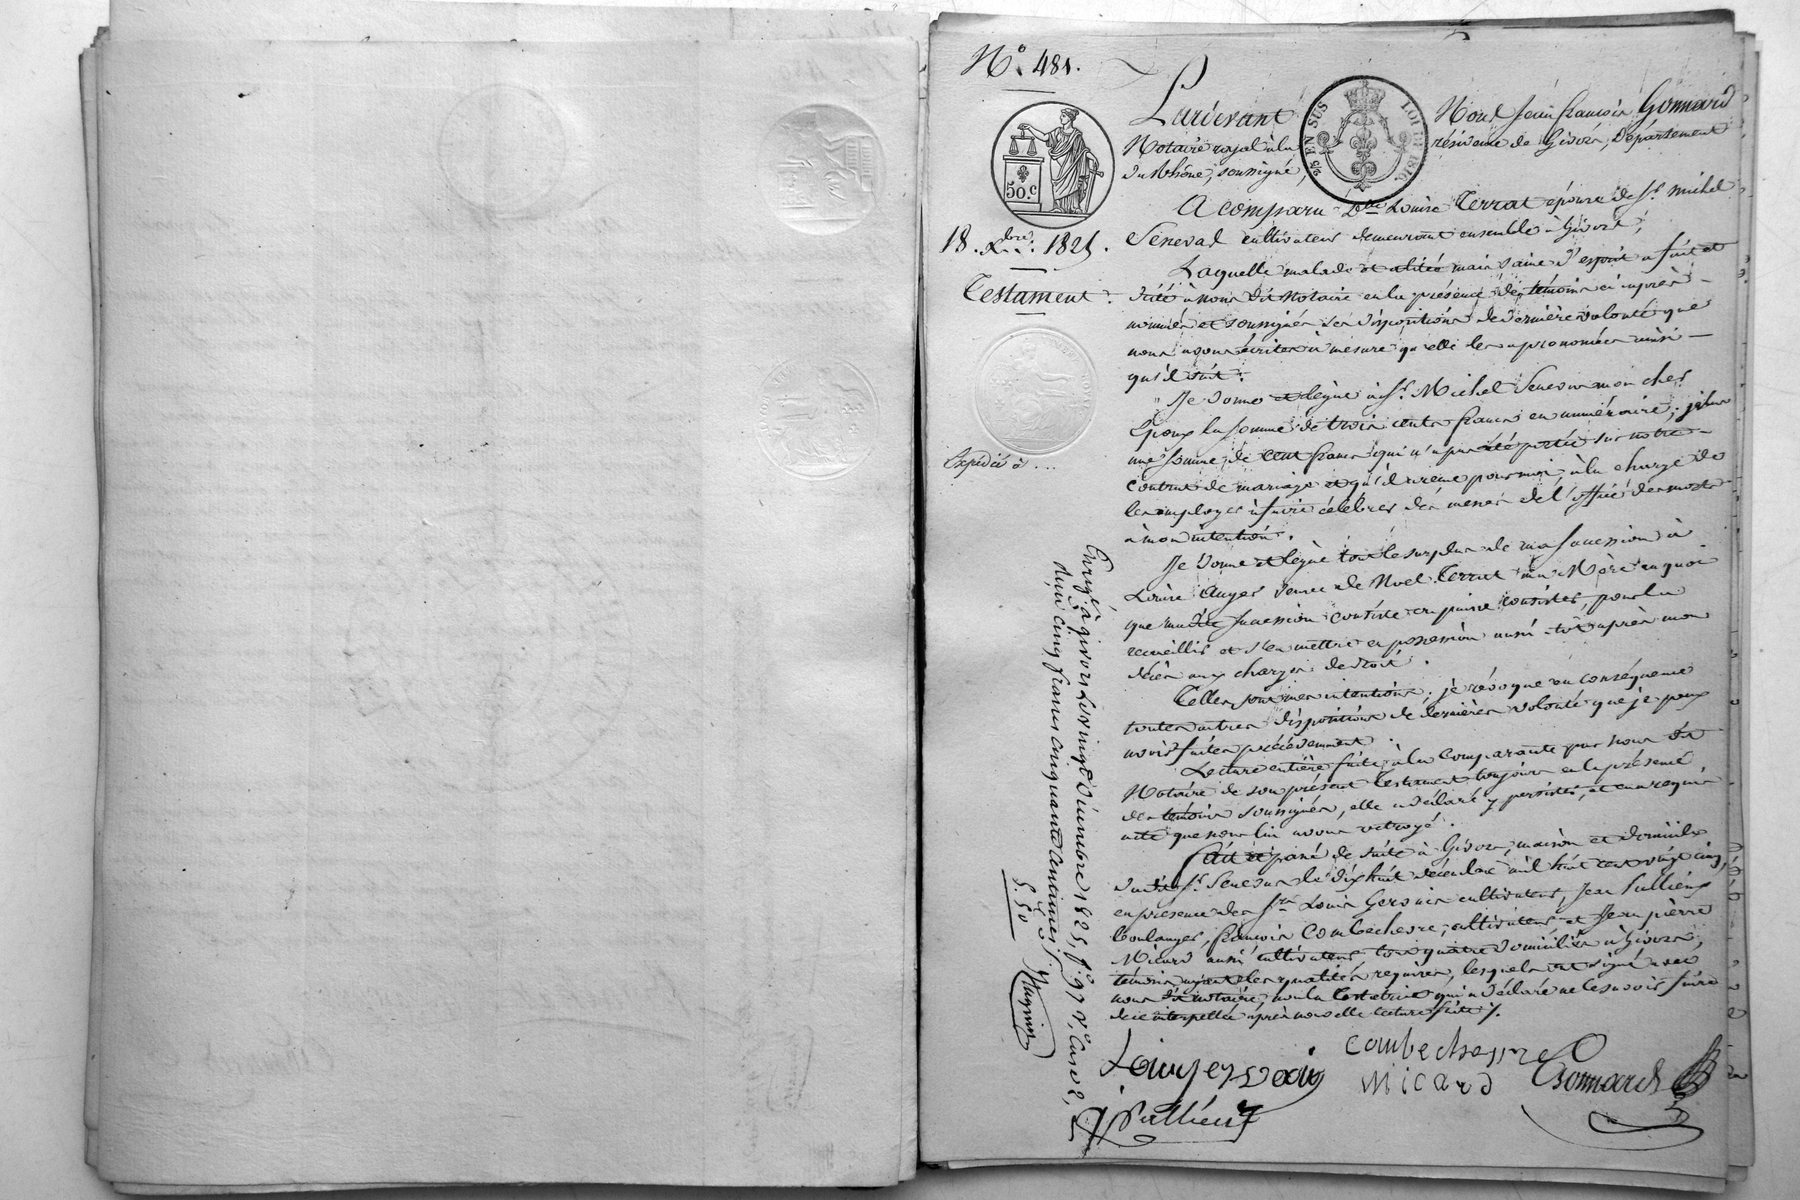 N.° 481.
Pardevant Nous Jean françois Gonnard
Notaire royal à la résidence de Givors, Département
du Rhône, soussigné,
25 EN SUS
LOI DE 1816
50.c
A comparu D.me Louise Terrat épouse de S.r Michel
18. Xbre 1825.
Seneval cultivateur demeurant ensemble à Givors;
Laquelle malade et alitée mais saine d'esprit a fait et
Testament.
dicté à nous dit Notaire en la présence des témoins ci après
nommés et soussignés ses dispositions de dernière volonté que
nous avons écrites à mesure qu'elle les a prononcées ainsi
qu'il suit:
Je donne et lègue à S.r Michel Seneval mon cher
Epoux la somme de trois cents francs en numéraire; plus
Expédié à ...
une somme de cent francs qui n'a pas été portée sur notre
contrat de mariage et qu'il créme pour moi, à la charge de
les employer à faire célébrer des messes de l'office des morts
à mon intention.
Je donne et lègue tout le surplus de ma succession à
Louise Auger veuve de Noel Terrat ma Mère en quoi
que madite succession consiste en puisse consister, pour la
recueillir et s'en mettre en possession aussi-tôt après mon
décès aux charges de droit.
Telles sont mes intentions; je révoque en conséquence
toutes autres dispositions de dernière volonté que je peux
avoir faites précédemment.
Lecture entière faite à la comparante par nous dit
Notaire de son présent Testament toujours en la présence
des témoins soussignés, elle a déclaré y persister, et en a requis
acte que nous lui avons octroyé.
Fait et passé de suite à Givors, maison et domicile
dudit S.r Seneval le dix huit décembre mil huit cent vingt cinq,
en présence des S.rs Louis Gervais cultivateur, Jean Pullieux
boulanger, françois Combechesre, cultivateur et Jean pierre
Micard aussi cultivateur tous quatre domiciliés à Givors,
témoins ayant les qualités requises, lesquels ont signé avec
nous dit notaire, non la testatrice qui a déclaré ne le savoir faire
de ce interpellée après nouvelle lecture faite.
Enrg.é à givors Le vingt Décembre 1825, f.° 97 v.°, Case 2,
reçu cinq francs cinquante centimes.
5.50
Louis gervais
Combechesre
Micard
Gonnard
J Pullieux